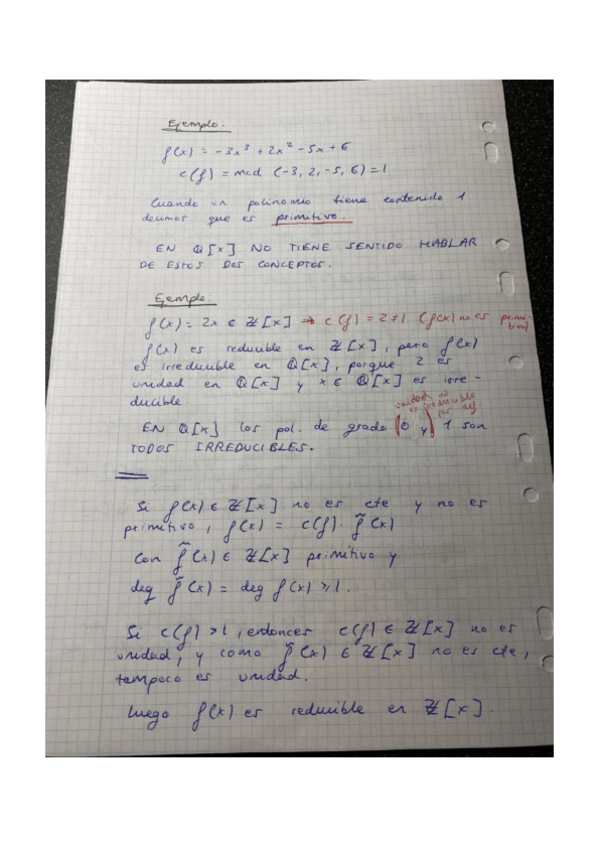 Ejemplo:
f(x) = -3x³ + 2x² - 5x + 6
c(f) = mcd (-3, 2, -5, 6) = 1
Cuando un polinomio tiene contenido 1
decimos que es primitivo.
EN ℚ[x] NO TIENE SENTIDO HABLAR
DE ESTOS DOS CONCEPTOS.
Ejemplo:
f(x) = 2x ∈ ℤ[x] → c(f) = 2 ≠ 1 (f(x) no es primitivo)
f(x) es reducible en ℤ[x], pero f(x)
es irreducible en ℚ[x], porque 2 es
unidad en ℚ[x] y x ∈ ℚ[x] es irre-
ducible.
unidad no
es irreducible
por def
EN ℚ[x] los pol. de grado (0 y) 1 son
TODOS IRREDUCIBLES.
Si f(x) ∈ ℤ[x] no es cte y no es
primitivo, f(x) = c(f) · f̃(x)
con f̃(x) ∈ ℤ[x] primitivo y
deg f̃(x) = deg f(x) ≥ 1.
Si c(f) > 1, entonces c(f) ∈ ℤ[x] no es
unidad, y como f̃(x) ∈ ℤ[x] no es cte,
tampoco es unidad.
Luego f(x) es reducible en ℤ[x].